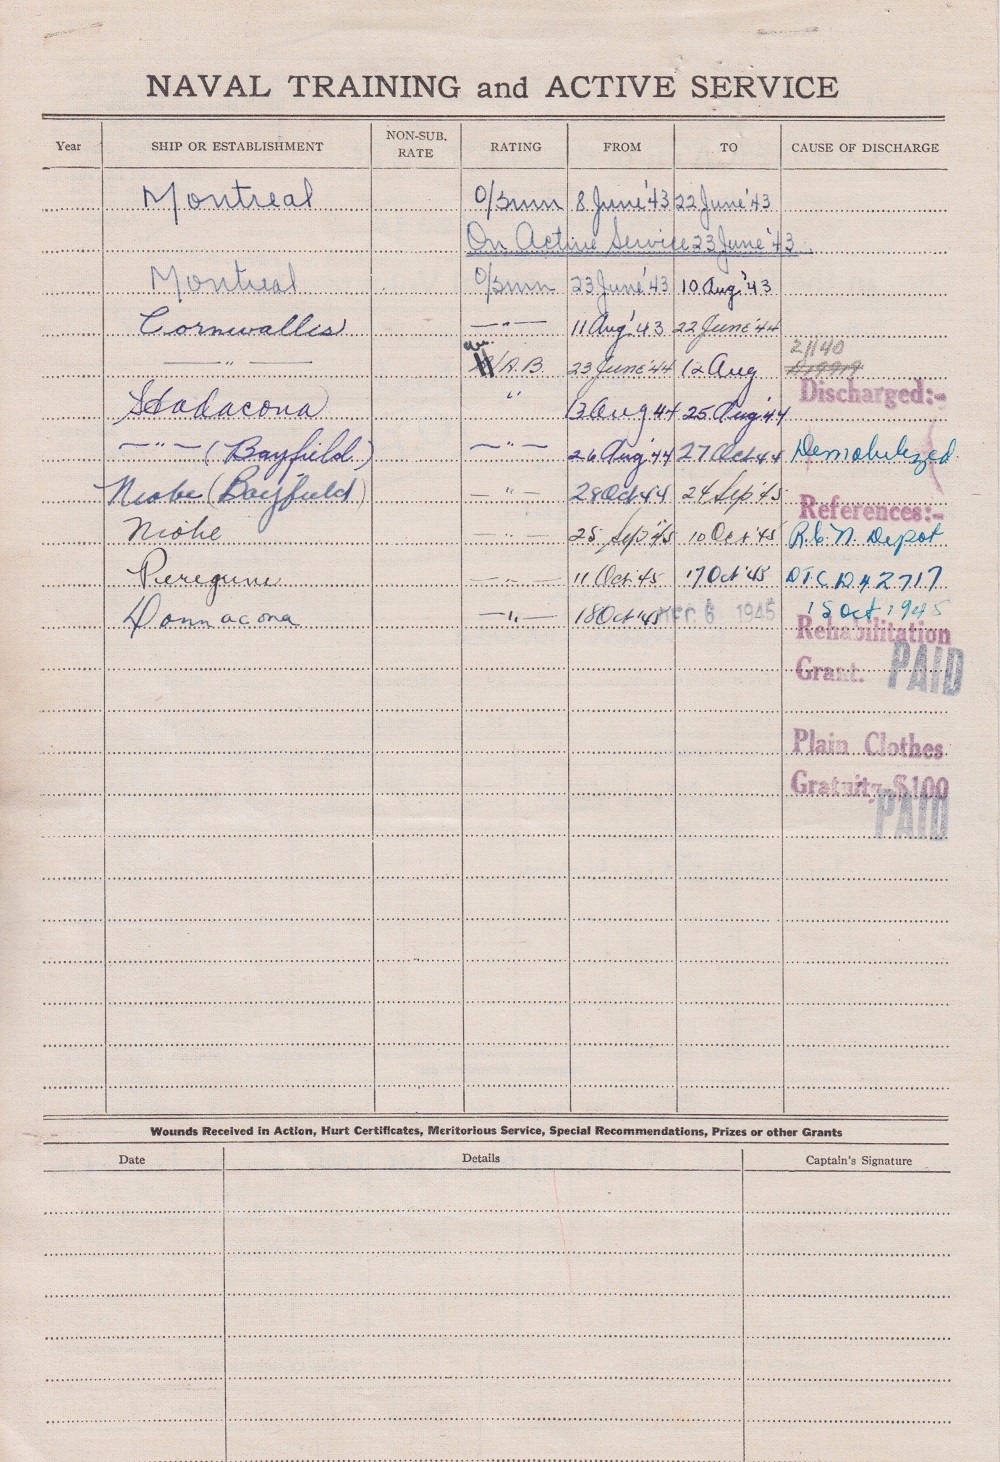 NAVAL TRAINING and ACTIVE SERVICE
Year SHIP OR ESTABLISHMENT NON-SUB. RATE RATING FROM TO CAUSE OF DISCHARGE
Montreal O/Smn 8 June '43 22 June '43
On Active Service 23 June '43
Montreal O/Smn 23 June '43 10 Aug. '43
Cornwallis — " — 11 Aug' 43 22 June '44
— " — /A.B. 23 June '44 12 Aug 21140
Discharged:-
Stadacona " 13 Aug 44 25 Aug '44
— " — (Bayfield) — " — 26 Aug '44 27 Oct 44 Demobilized
Niobe (Bayfield) — " — 28 Oct 44 24 Sep '45
References:-
Niobe — " — 25 Sep '45 10 Oct '45 R.C.N. Depot
Peregrine — " — 11 Oct '45 17 Oct '45 DTC D42717
Donnacona — " — 18 Oct '45 6 1945 15 Oct 1945
Rehabilitation
Grant. PAID
Plain Clothes
Gratuity $100
PAID
Wounds Received in Action, Hurt Certificates, Meritorious Service, Special Recommendations, Prizes or other Grants
Date Details Captain's Signature